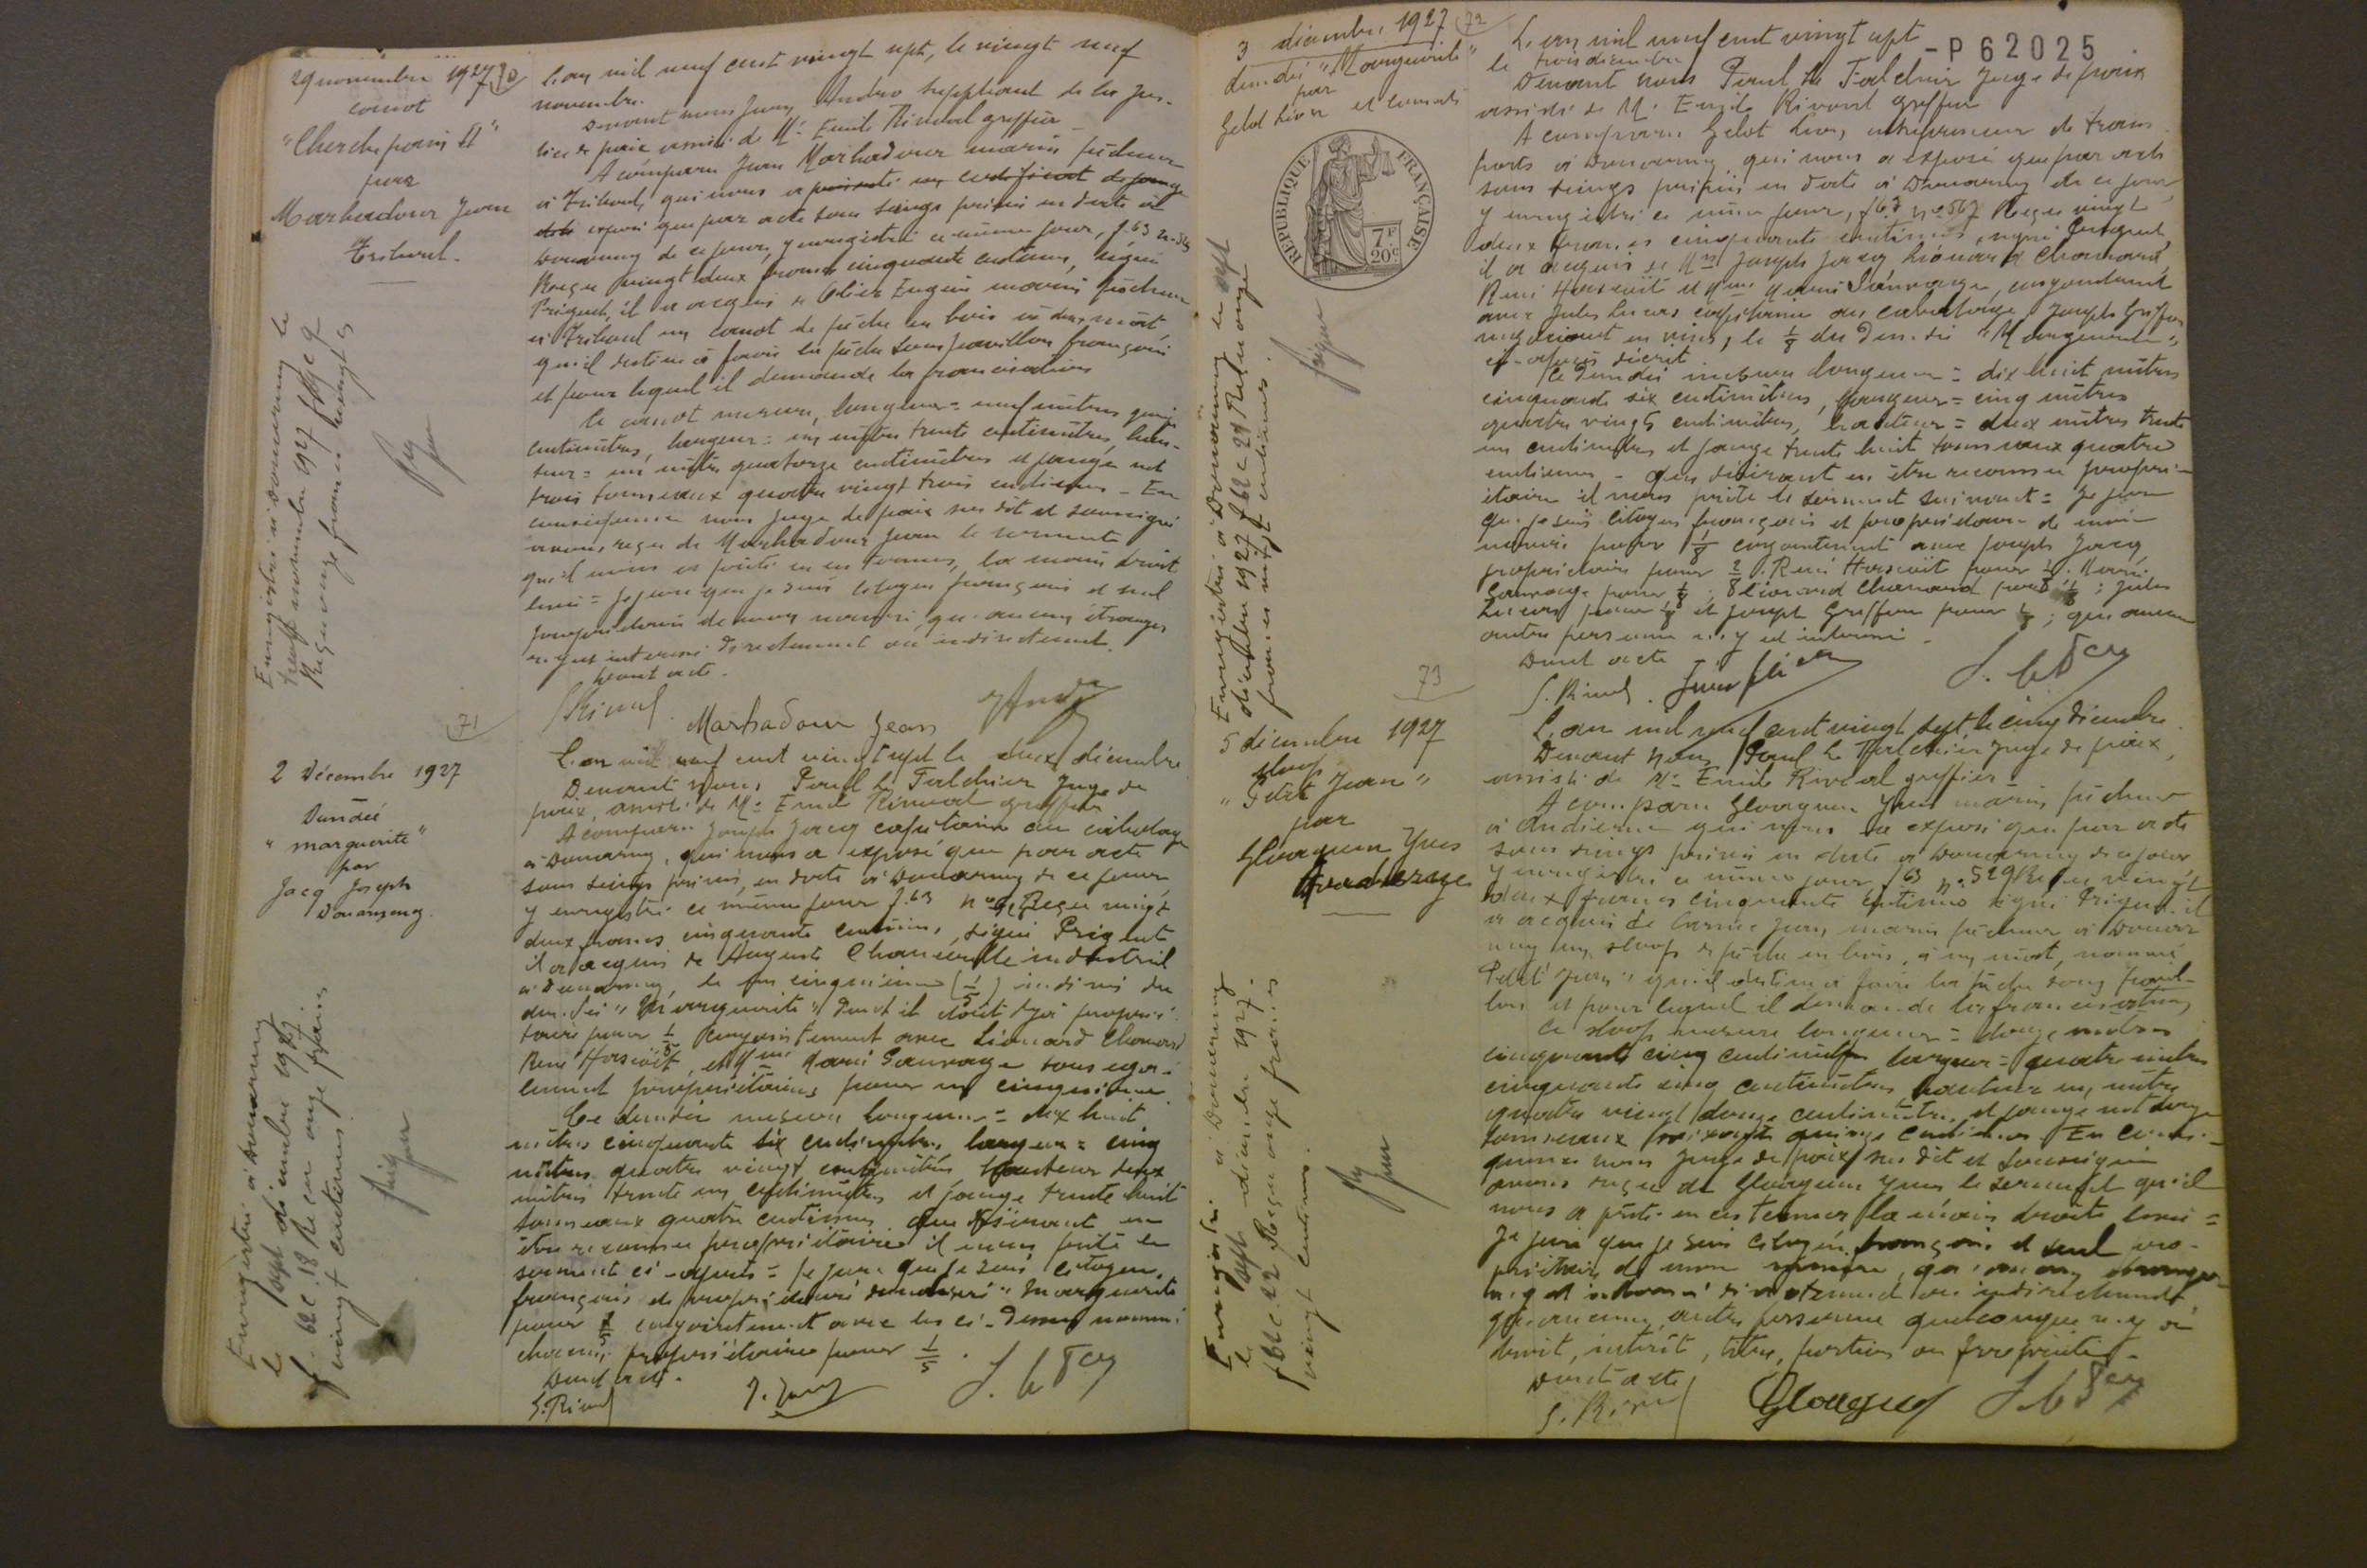 29 novembre 1927 70
canot
"Cherche pain II"
par
Marhadour Jean
Tréboul.
L'an mil neuf cent vingt sept, le vingt neuf
novembre.
Devant nous Jean Andro suppléant de la jus-
tice de paix assisté de Me Emile Rivoal greffier
A comparu Jean Marhadour marin pêcheur
à Tréboul, qui nous a présenté un certificat de jauge
exposé que par acte sous seings privés en date à
Douarnenez de ce jour, y enregistré ce même jour, f. 63
Reçu vingt deux francs cinquante centimes, signé
Prigent, il a acquis de Eugène marin pêcheur
à Tréboul un canot de pêche en bois à un mât,
qu'il destine à faire la pêche sous pavillon français
et pour lequel il demande la francisation
Le canot mesure, longueur = neuf mètres quinze
centimètres, largeur = mètres trente centimètres, hau-
teur = un mètre quatorze centimètres et jauge net
trois tonneaux quatre vingt trois centièmes - En
conséquence nous Juge de paix sus dit et soussigné
avons reçu de Marhadour Jean le serment
qu'il nous a prêté en ces termes, la main droite
levée = Je jure que je suis citoyen français et seul
propriétaire de mon navire, qu'aucun étranger
n'y est intéressé directement ou indirectement.
Dont acte.
E. Rivoal Marhadour Jean J Andro
Enregistré à Douarnenez le
neuf novembre 1927 f
Reçu onze francs vingt c
71
2 Décembre 1927
Dundée
"marguerite"
par
Jacq Joseph
Douarnenez.
L'an mil neuf cent vingt sept le deux décembre
Devant nous Paul Le Falchier Juge de
paix, assisté de Me Emile Rivoal greffier
A comparu Joseph Jacq capitaine au cabotage
à Douarnenez, qui nous a exposé que par acte
sous seings privés, en date à Douarnenez de ce jour
y enregistré ce même jour f. 63 Reçu vingt
deux francs cinquante centimes, signé Prigent
il a acquis de Auguste Chancerelle industriel
à Douarnenez, le un cinquième (1/5) indivis du
dundée "Marguerite" dont il était déjà proprié-
taire pour 1/5 conjointement avec Léonard Chomard
René Horscoit, et Mme Marie Sauvage tous éga-
lement propriétaires pour un cinquième.
Ce dundée mesure longueur = dix huit
mètres cinquante six centimètres, largeur = cinq
mètres quatre vingt centimètres hauteur deux
mètres trente un centimètres et jauge trente huit
tonneaux quatre centièmes. Que désirant en
être reconnu propriétaire il nous prête le
serment ci-après = Je jure que je suis citoyen
français et propriétaire du navire "Marguerite
pour 2/5 conjointement avec les ci-dessus nommés
chacun, propriétaire pour 1/5.
Dont acte.
E. Rivoal J. Jacq
Enregistré à Douarnenez
le sept décembre 1927
f. 62 c. 18 Reçu onze francs
vingt centimes.
3 décembre 1927 72
dundée "Marguerite"
par
Gélot Léon et consorts
RÉPUBLIQUE FRANÇAISE
7F
20c
- P 62025
L'an mil neuf cent vingt sept
le trois décembre
Devant nous Paul Le Falchier Juge de paix
assisté de Me Emile Rivoal greffier
A comparu Gélot Léon, entrepreneur de trans-
ports à Douarnenez, qui nous a exposé que par acte
sous seings privés en date à Douarnenez de ce jour,
y enregistré ce même jour, f 63 no 567 Reçu vingt
deux francs cinquante centimes, signé Prigent,
il a acquis de Mrs Joseph Jacq Léonard Chomard,
René Horscoit et Mme Marie Sauvage, conjointement
avec Jules Lucas capitaine au cabotage, Joseph Griffon
négociant en vins, le 1/8 du Dundée "Marguerite"
ci-après décrit
Ce Dundée mesure longueur = dix huit mètres
cinquante six centimètres, largeur = cinq mètres
quatre vingts centimètres, hauteur = deux mètres trente
un centimètres et jauge trente huit tonneaux quatre
centièmes - Que désirant en être reconnu propri-
étaire il nous prête le serment suivant = Je jure
que je suis citoyen français et propriétaire de mon
navire pour 1/8 conjointement avec Joseph Jacq
propriétaire pour 2/8. René Horscoit pour 1/8. Marie
Sauvage pour 1/8; Léonard Chomard pour 1/8; Jules
Lucas pour 1/8 et Joseph Griffon pour 1/8; que aucune
autre personne n'y est intéressée.
Dont acte
E. Rivoal.
Enregistré à Douarnenez le sept
décembre 1927 f 62 c 21 Reçu onze
francs vingt centimes.
73
5 décembre 1927
sloop
"Petit Jean"
par
Gloaguen Yves
Audierne
L'an mil neuf cent vingt sept, le cinq décembre
Devant nous Paul Le Falchier Juge de paix,
assisté de Me Emile Rivoal greffier
A comparu Gloaguen Yves marin pêcheur
à Audierne qui nous a exposé que par acte
sous seings privés en date à Douarnenez de ce jour
y enregistré ce même jour f 63 no 529 Reçu vingt
deux francs cinquante centimes signé Prigent il
a acquis de Jean, marin pêcheur à Douar-
nenez un sloop de pêche en bois, à un mât, nommé
Petit Jean" qu'il destine à faire la pêche sous pavil-
lon et pour lequel il demande la francisation
Ce sloop mesure longueur = douze mètres
cinquante cinq centimètres largeur = quatre mètres
cinquante cinq centimètres hauteur un mètre
quatre vingt douze centimètres, et jauge net douze
tonneaux soixante quinze centièmes. En consé-
quence nous Juge de paix sus dit et soussigné
avons reçu de Gloaguen Yves le serment qu'il
nous a prêté en ces termes la main droite levée =
Je jure que je suis citoyen français et seul pro-
priétaire de mon navire, qu'aucun étranger
n'y est intéressé directement ou indirectement
qu'aucune autre personne quelconque n'y a
droit, intérêt, titre, portion ou propriété.
Dont acte
E. Rivoal Gloaguen
Enregistré à Douarnenez
le sept décembre 1927.
f 62 c. 22 Reçu onze francs
vingt centimes.